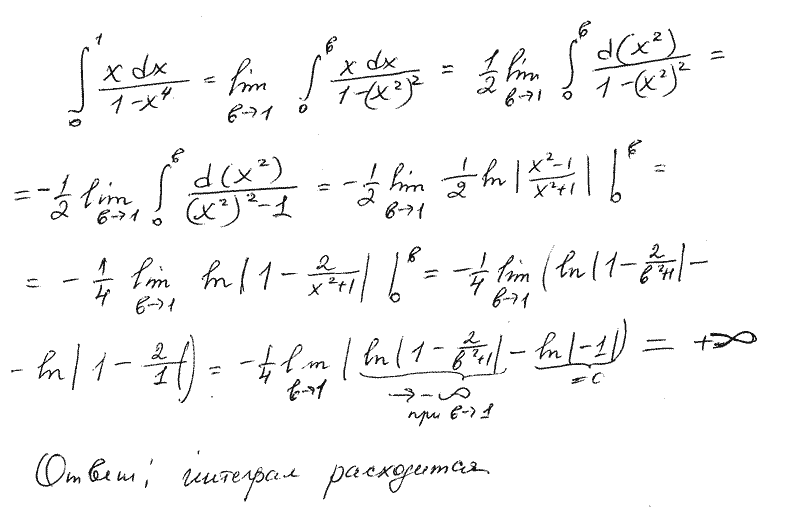 ∫₀¹ x dx / (1-x⁴) = lim_{в→1} ∫₀ᵇ x dx / (1-(x²)²) = 1/2 lim_{в→1} ∫₀ᵇ d(x²) / (1-(x²)²) =
= -1/2 lim_{в→1} ∫₀ᵇ d(x²) / ((x²)²-1) = -1/2 lim_{в→1} 1/2 ln|(x²-1)/(x²+1)| |₀ᵇ =
= -1/4 lim_{в→1} ln|1 - 2/(x²+1)| |₀ᵇ = -1/4 lim_{в→1} (ln|1 - 2/(в²+1)| -
- ln|1 - 2/1|) = -1/4 lim_{в→1} (ln|1 - 2/(в²+1)| - ln|-1|) = +∞
→ -∞ = 0
при в→1
Ответ: интеграл расходится